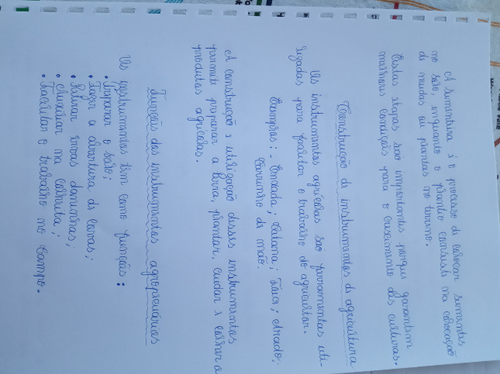 A sementeira é o processo de colocar sementes
no solo, enquanto o plantio consiste na colocação
de mudas ou plantas no terreno.
Estas etapas são importantes porque garantem
melhores condições para o crescimento das culturas.
Construção de instrumentos de agricultura
Os instrumentos agrícolas são ferramentas uti-
lizadas para facilitar o trabalho do agricultor.
Exemplos: . Enxada; Catana; Foice; Arado;
Carrinho de mão.
A construção e utilização desses instrumentos
permite preparar a terra, plantar, cuidar e colher o
produtos agrícolas.
Função dos instrumentos agropecuários
Os instrumentos têm como função:
• Preparar o solo;
• Fazer a abertura de covas;
• Retirar ervas daninhas;
• Auxiliar na colheita;
• Facilitar o trabalho no campo.